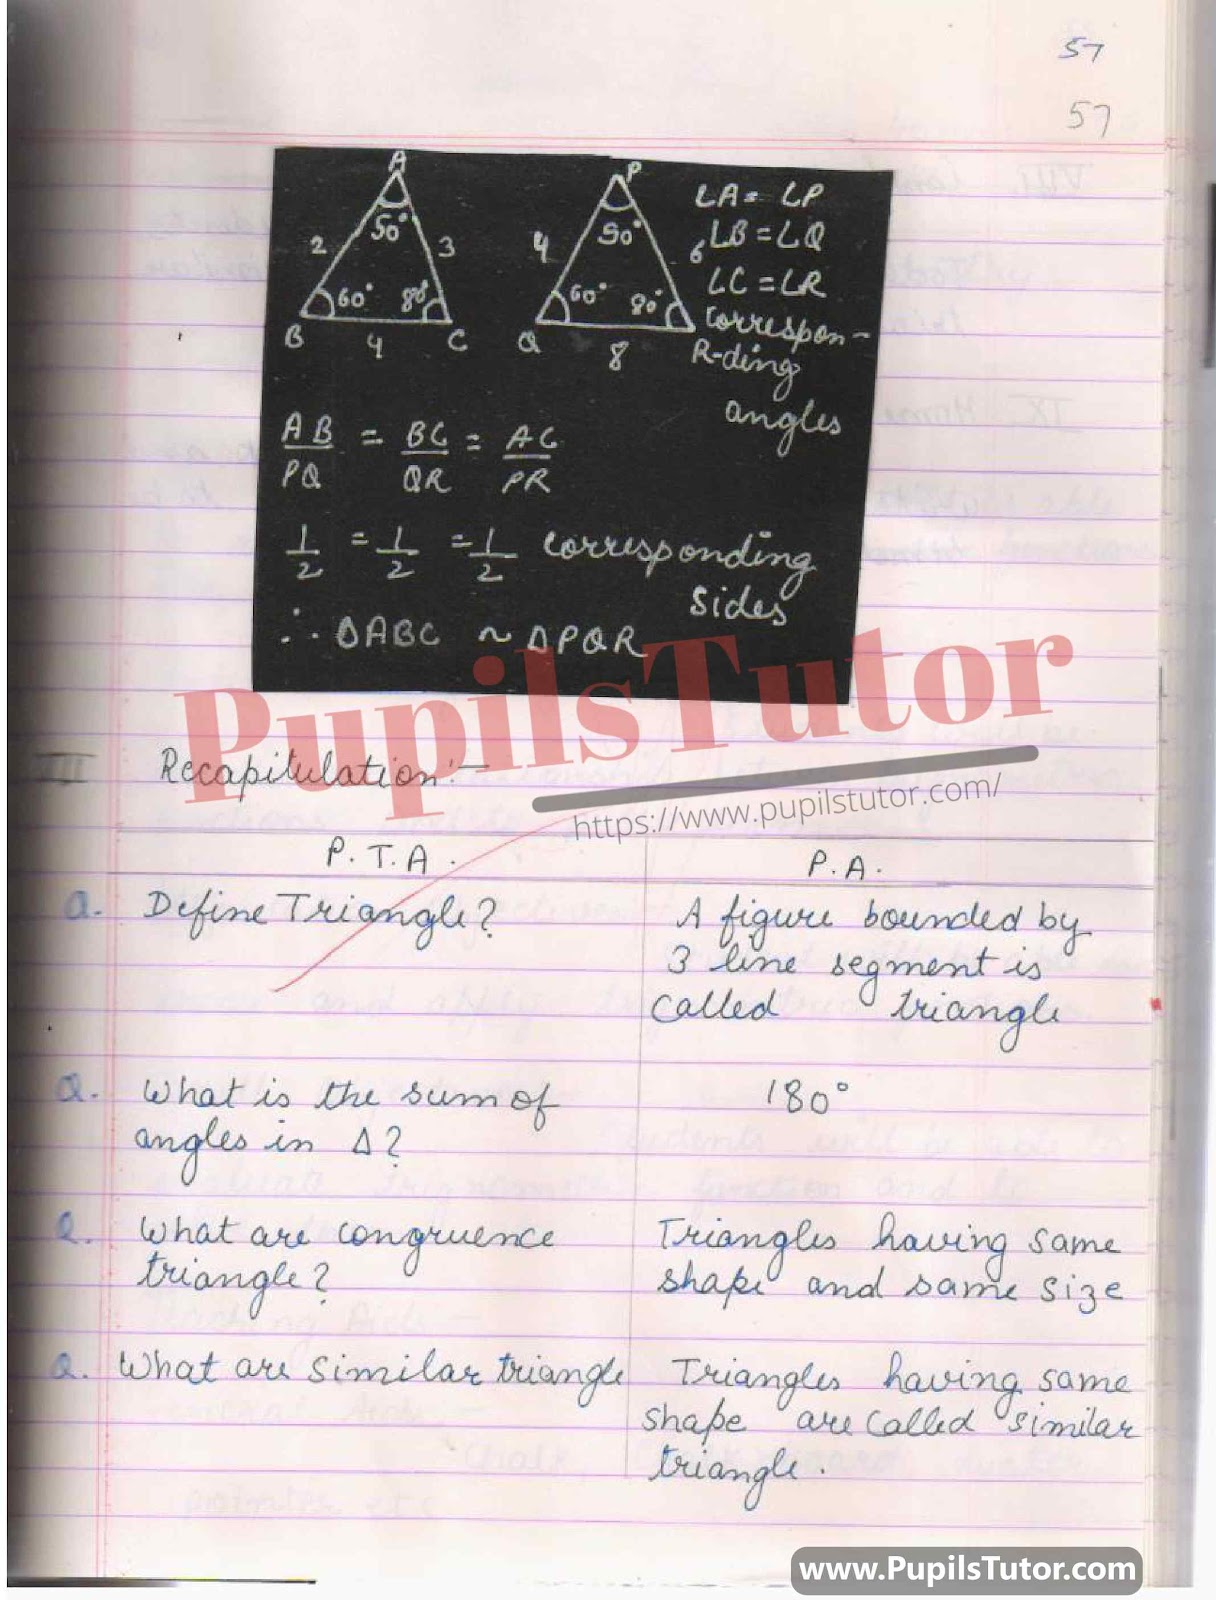 57
57
A
P
∠A = ∠P
50°
50°
2
3
4
6
∠B = ∠Q
60°
80°
60°
80°
∠C = ∠R
B
4
C
Q
8
R
correspon-
-ding
angles
AB/PQ = BC/QR = AC/PR
1/2 = 1/2 = 1/2 corresponding
sides
∴ ΔABC ~ ΔPQR
PupilsTutor
https://www.pupilstutor.com/
III Recapitulation:-
P.T.A.
P.A.
Q. Define Triangle?
A figure bounded by
3 line segment is
called triangle
Q. What is the sum of
angles in Δ?
180°
Q. What are congruence
triangle?
Triangles having same
shape and same size
Q. What are similar triangle
Triangles having same
shape are called similar
triangle.
www.PupilsTutor.com